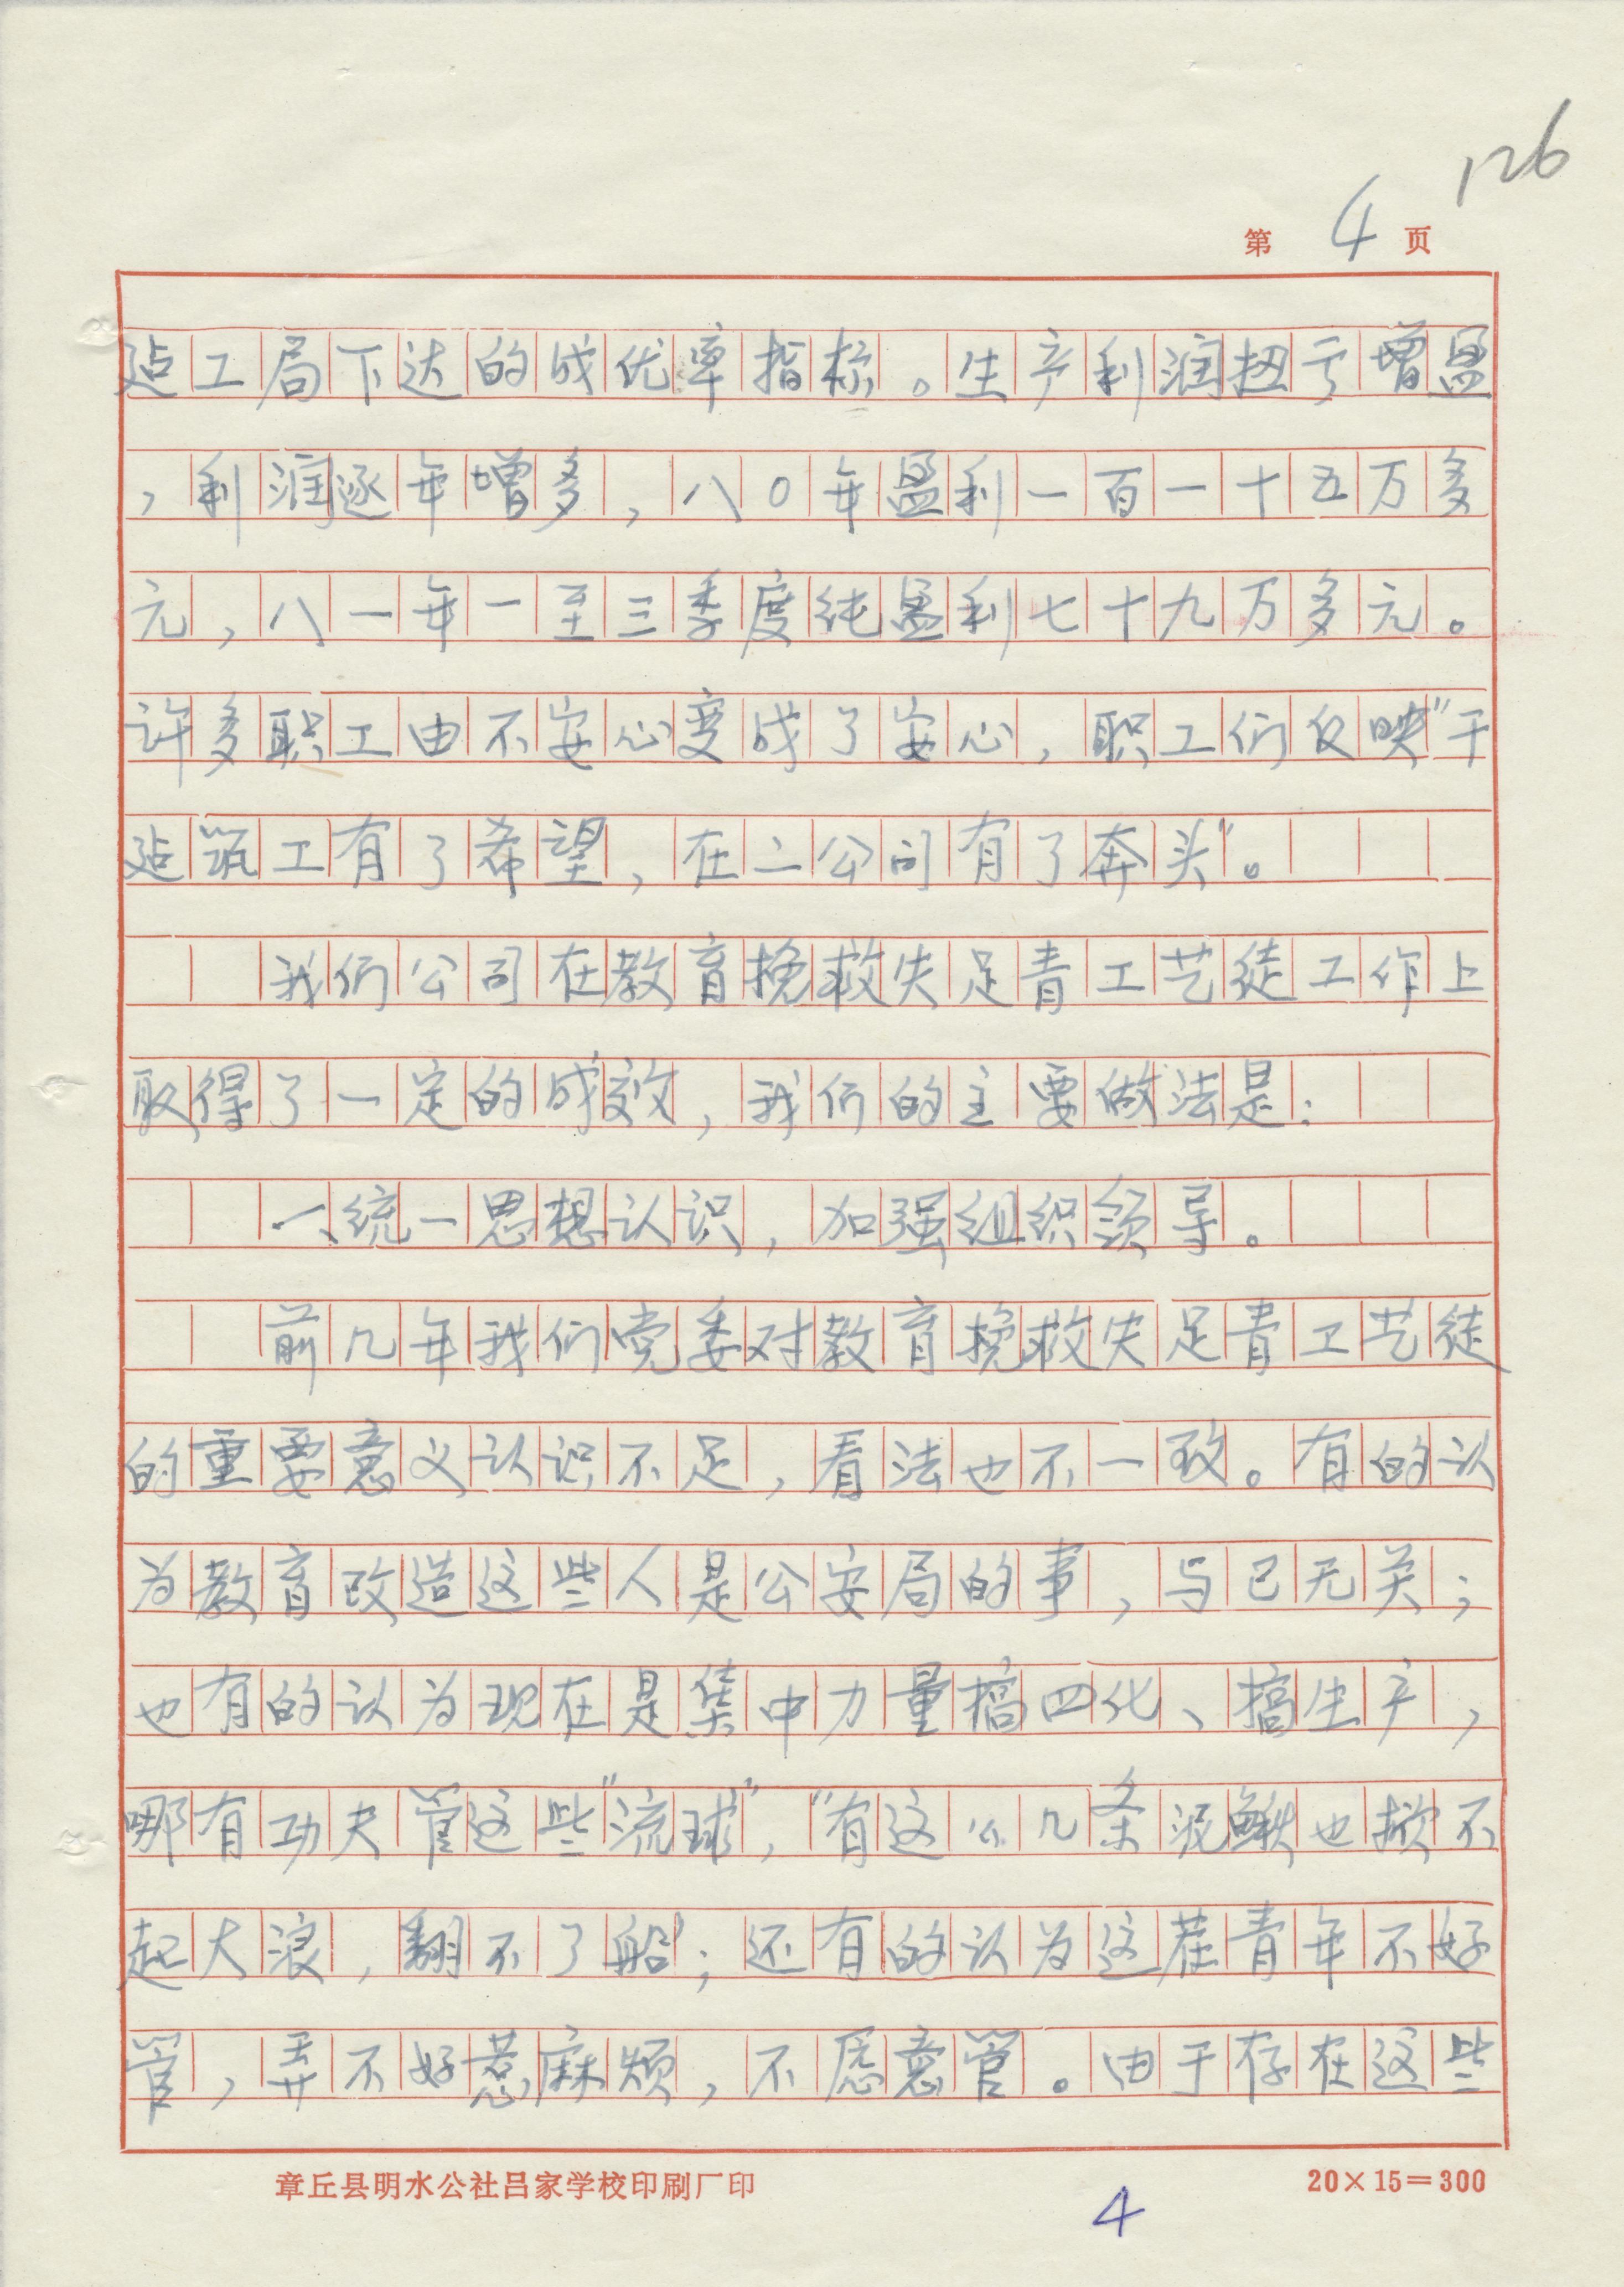 126
第 4 页
建工局下达的成优率指标。生产利润扭亏增盈
，利润逐年增多，八〇年盈利一百一十五万多
元，八一年一至三季度纯盈利七十九万多元。
许多职工由不安心变成了安心，职工们反映“干
建筑工有了希望，在二公司有了奔头”。
我们公司在教育挽救失足青工艺徒工作上
取得了一定的成效，我们的主要做法是：
一、统一思想认识，加强组织领导。
前几年我们党委对教育挽救失足青工艺徒
的重要意义认识不足，看法也不一致。有的认
为教育改造这些人是公安局的事，与己无关；
也有的认为现在是集中力量搞四化、搞生产，
哪有功夫管这些“流球”，“有这么几条泥鳅也掀不
起大浪，翻不了船”；还有的认为这茬青年不好
管，弄不好惹麻烦，不愿意管。由于存在这些
章丘县明水公社吕家学校印刷厂印 20×15=300
4